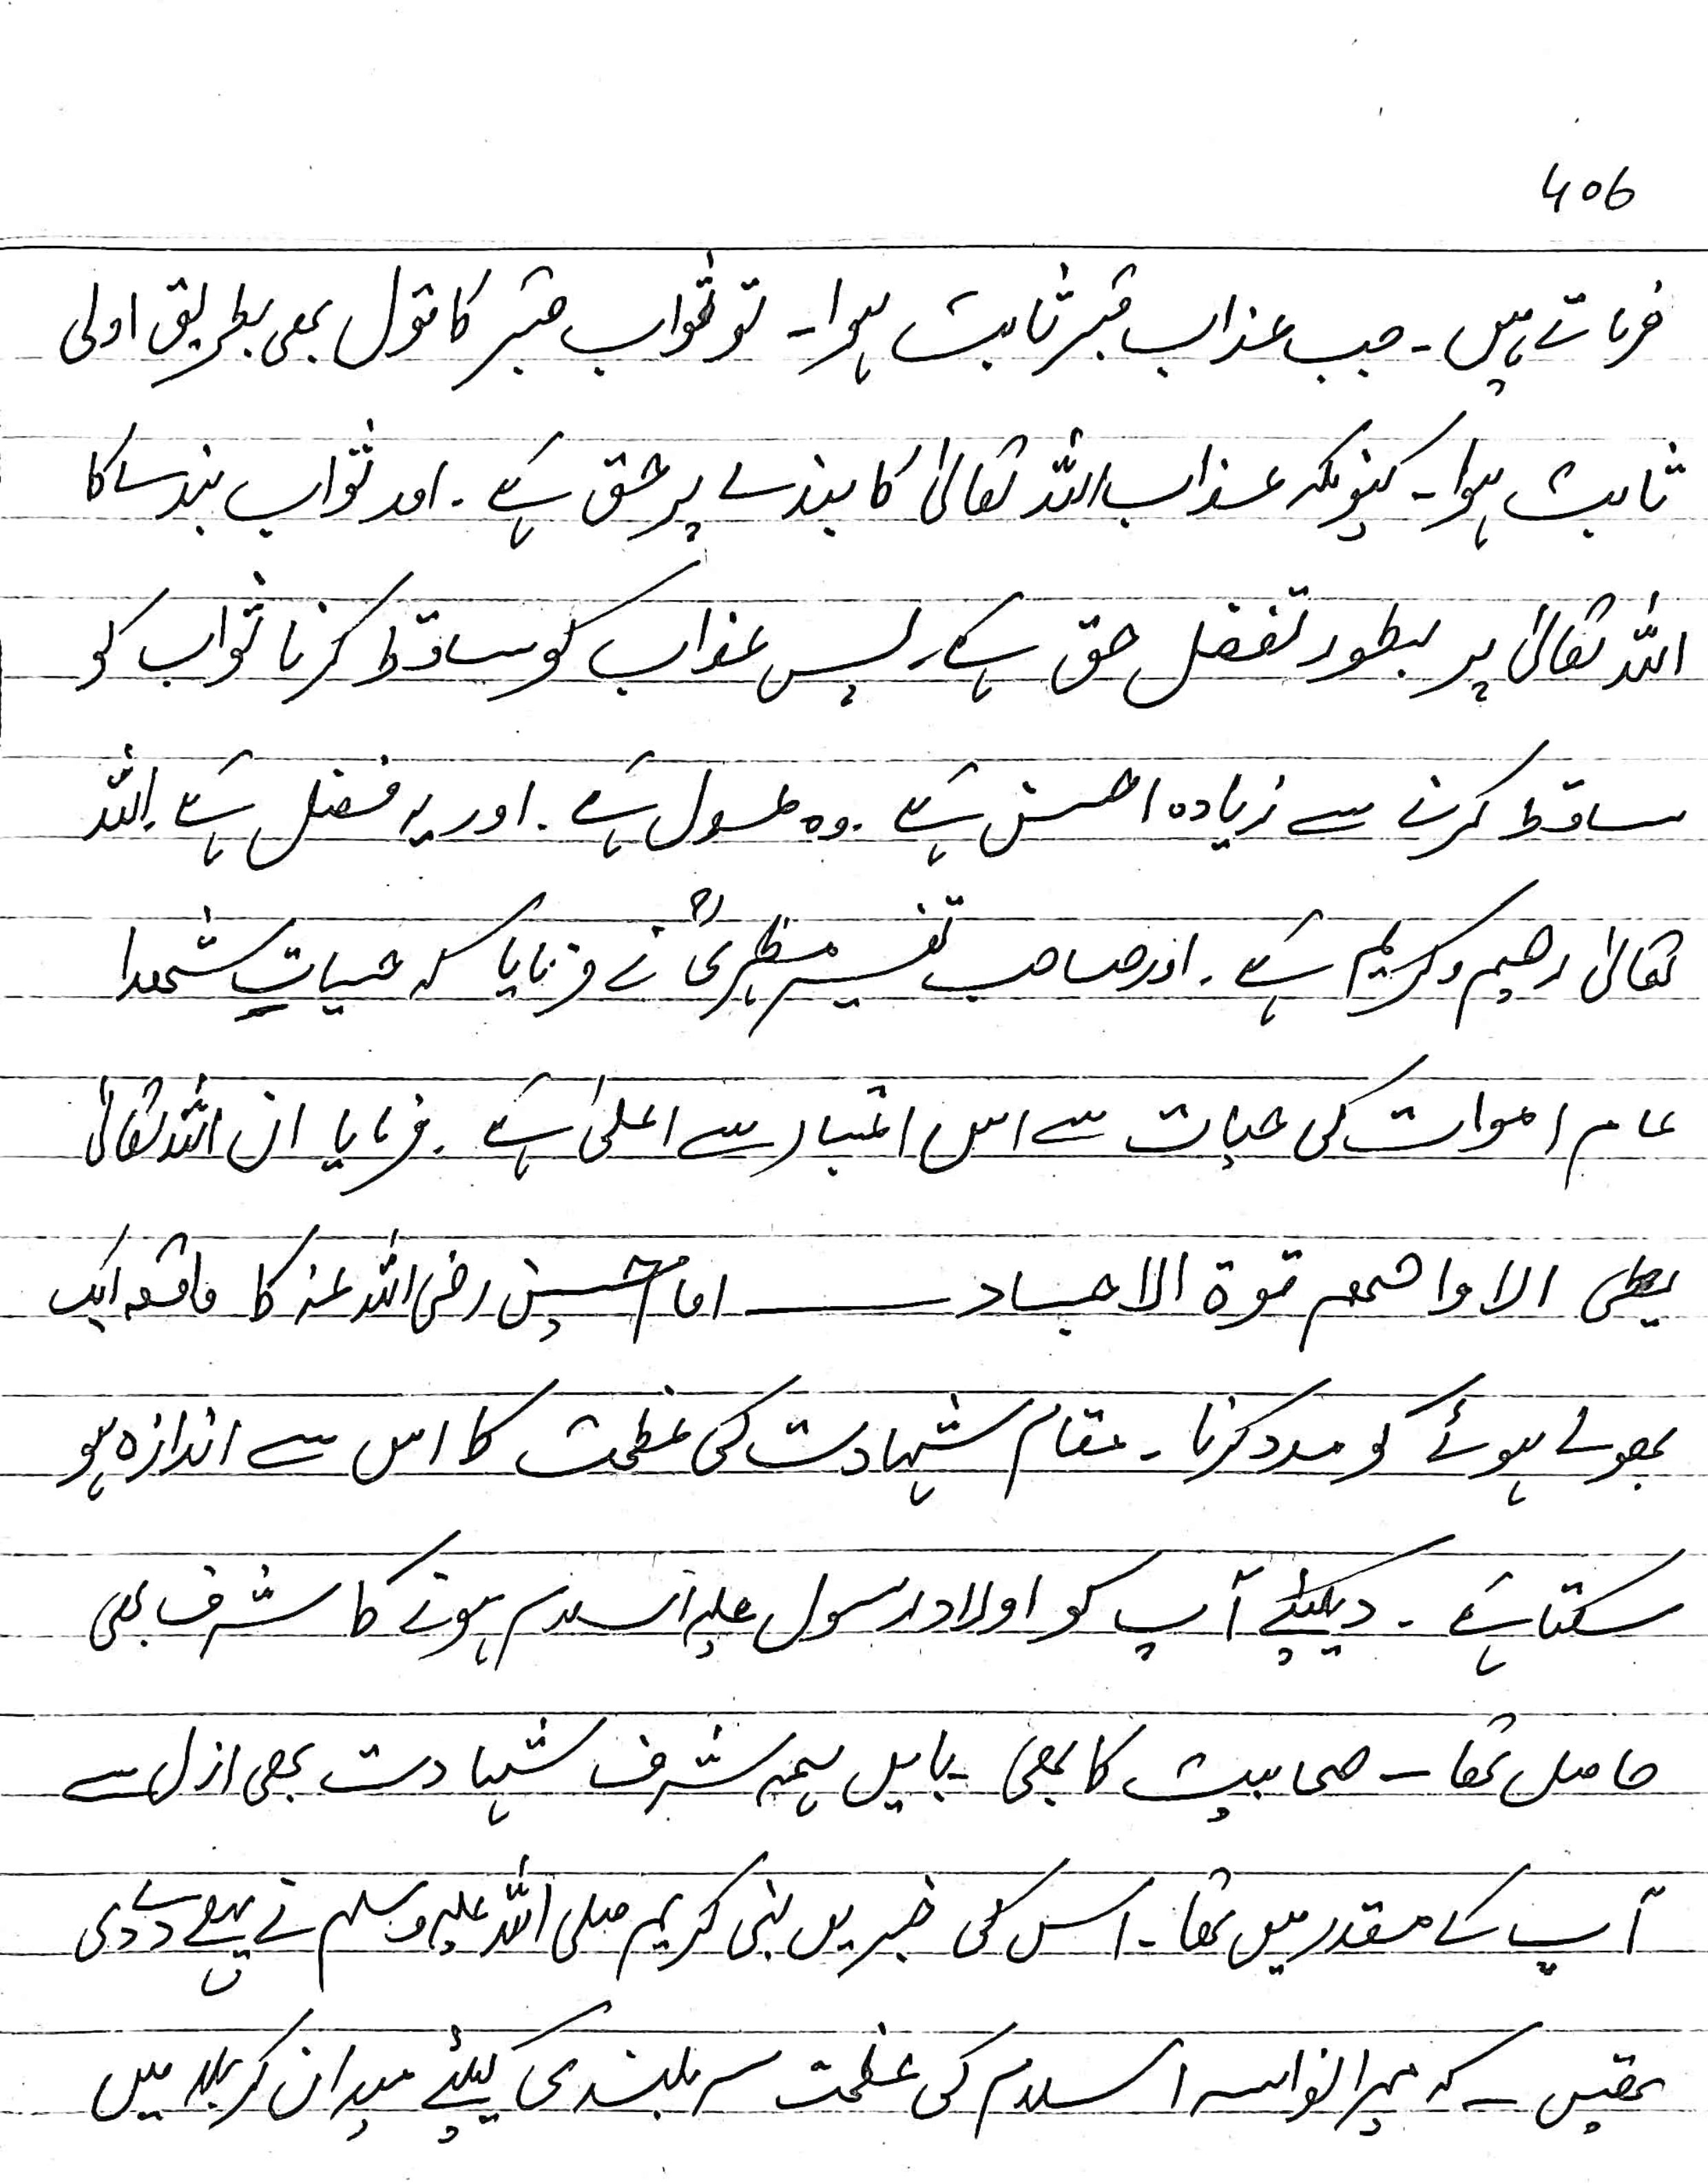 406
فرماتے ہیں۔ جب عذاب قبر ثابت ہوا۔ تو ثواب قبر کا قول بھی بطریق اولی
ثابت ہوا۔ کیونکہ عذاب اللہ تعالیٰ کا بندے پر حق ہے۔ اور ثواب بندے کا
اللہ تعالیٰ پر بطور تفضل حق ہے۔ پس عذاب کو ساقط کرنا ثواب کو
ساقط کرنے سے زیادہ احسن ہے۔ وہ عدل ہے۔ اور یہ فضل ہے۔ اللہ
تعالیٰ رحیم و کریم ہے۔ اور صاحب تفسیر مظہریؒ نے فرمایا کہ حیاتِ شھدا
عام اموات کی حیات سے اس اعتبار سے اعلیٰ ہے۔ فرمایا ان اللہ تعالیٰ
یعطی الاروا حھم قوۃ الاجساد ــــــ امام حسین رضی اللہ عنہ کا واقعہ ایک
بھولے ہوئے کو مدد کرنا۔ مقام شہادت کی عظمت کا اس سے اندازہ ہو
سکتا ہے۔ دیکھئے آپ کو اولاد رسول علیہ السلام ہونے کا شرف بھی
حاصل تھا۔ صحابیت کا بھی۔ بایں ہمہ شرف شہادت بھی ازل سے
آپ کے مقدر میں تھا۔ اس کی خبریں نبی کریم صلی اللہ علیہ وسلم نے پہلے دے دی
تھیں۔ کہ میرا نواسہ اسلام کی عظمت سربلندی کیلئے میدان کربلا میں